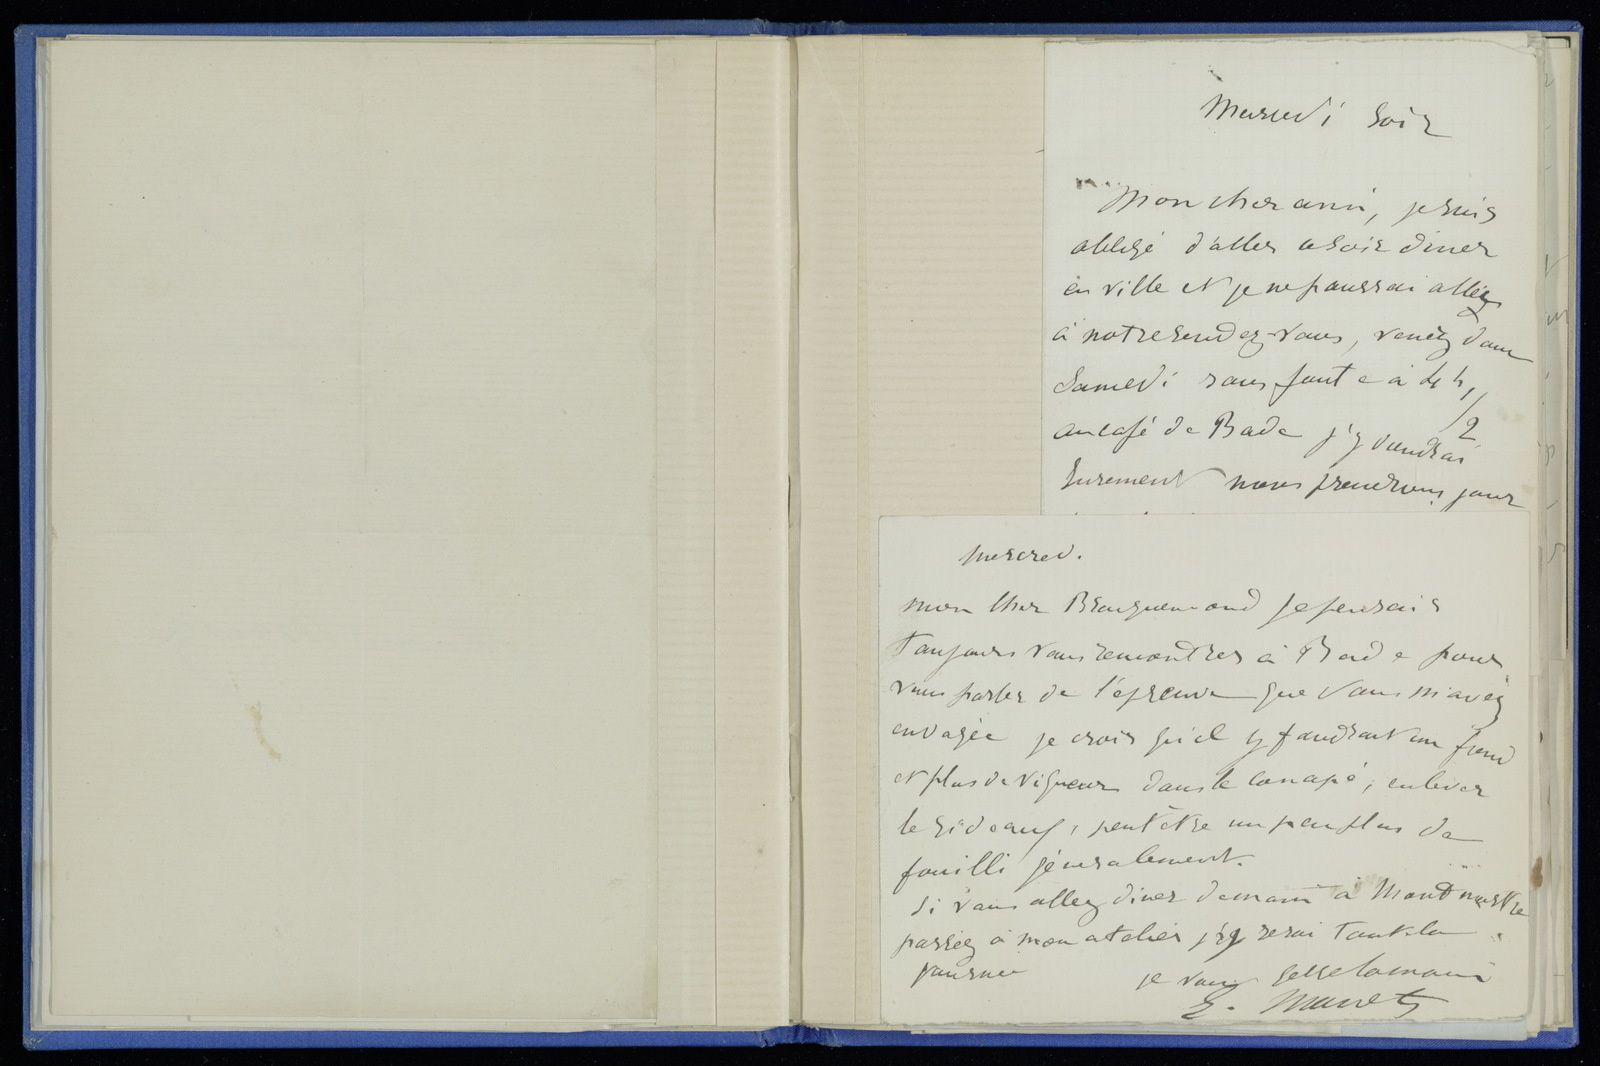 Mercredi soir
Mon cher ami, je suis
obligé d'aller ce soir diner
en ville et je ne pourrai aller
à notre rendez-vous, venez donc
Samedi sans faute à 4 h 1/2
au café de Bade j'y viendrai
surement nous prendrons jour
mercred.
mon cher Bracquemond je pensais
toujours vous rencontrer à Bade pour
vous parler de l'épreuve que vous m'avez
envoyée je crois qu'il y faudrait un fond
et plus de vigueur dans le canapé, enlever
le rideau, peut être un peu plus de
fouilli généralement.
si vous allez diner demain à Montmartre
passez à mon atelier j'y serai toute la
journée
je vous serre la main
E. Manet